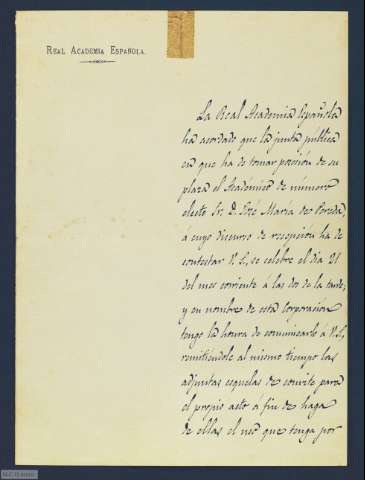 REAL ACADEMIA ESPAÑOLA.
La Real Academia Española
ha acordado que la junta pública
en que ha de tomar posesión de su
plaza el Académico de número
electo Sr. D. José María de Pereda,
á cuyo discurso de recepción ha de
contestar V. S., se celebre el día 21
del mes corriente á las dos de la tarde;
y en nombre de esta Corporación
tengo la honra de comunicarlo á V. S.,
remitiéndole al mismo tiempo las
adjuntas esquelas de convite para
el propio acto á fin de haga
de ellas el uso que tenga por